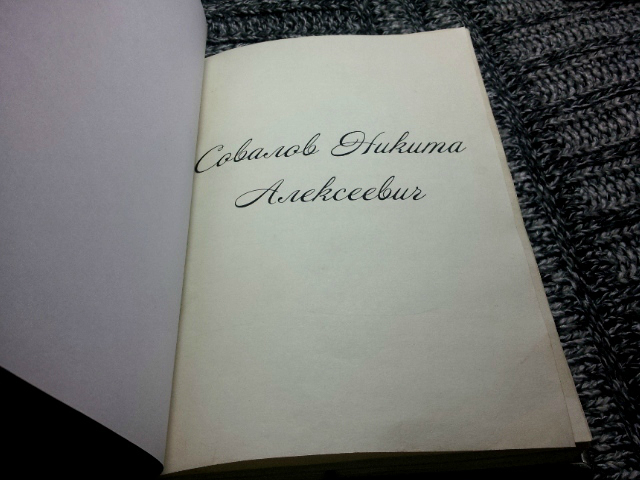 Совалов Никита
Алексеевич